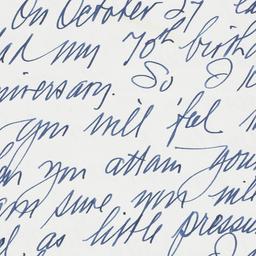 On October 27
had my 70th birth
niversary. So I
you will feel
hen you attain your
am sure you will
el as little pressu